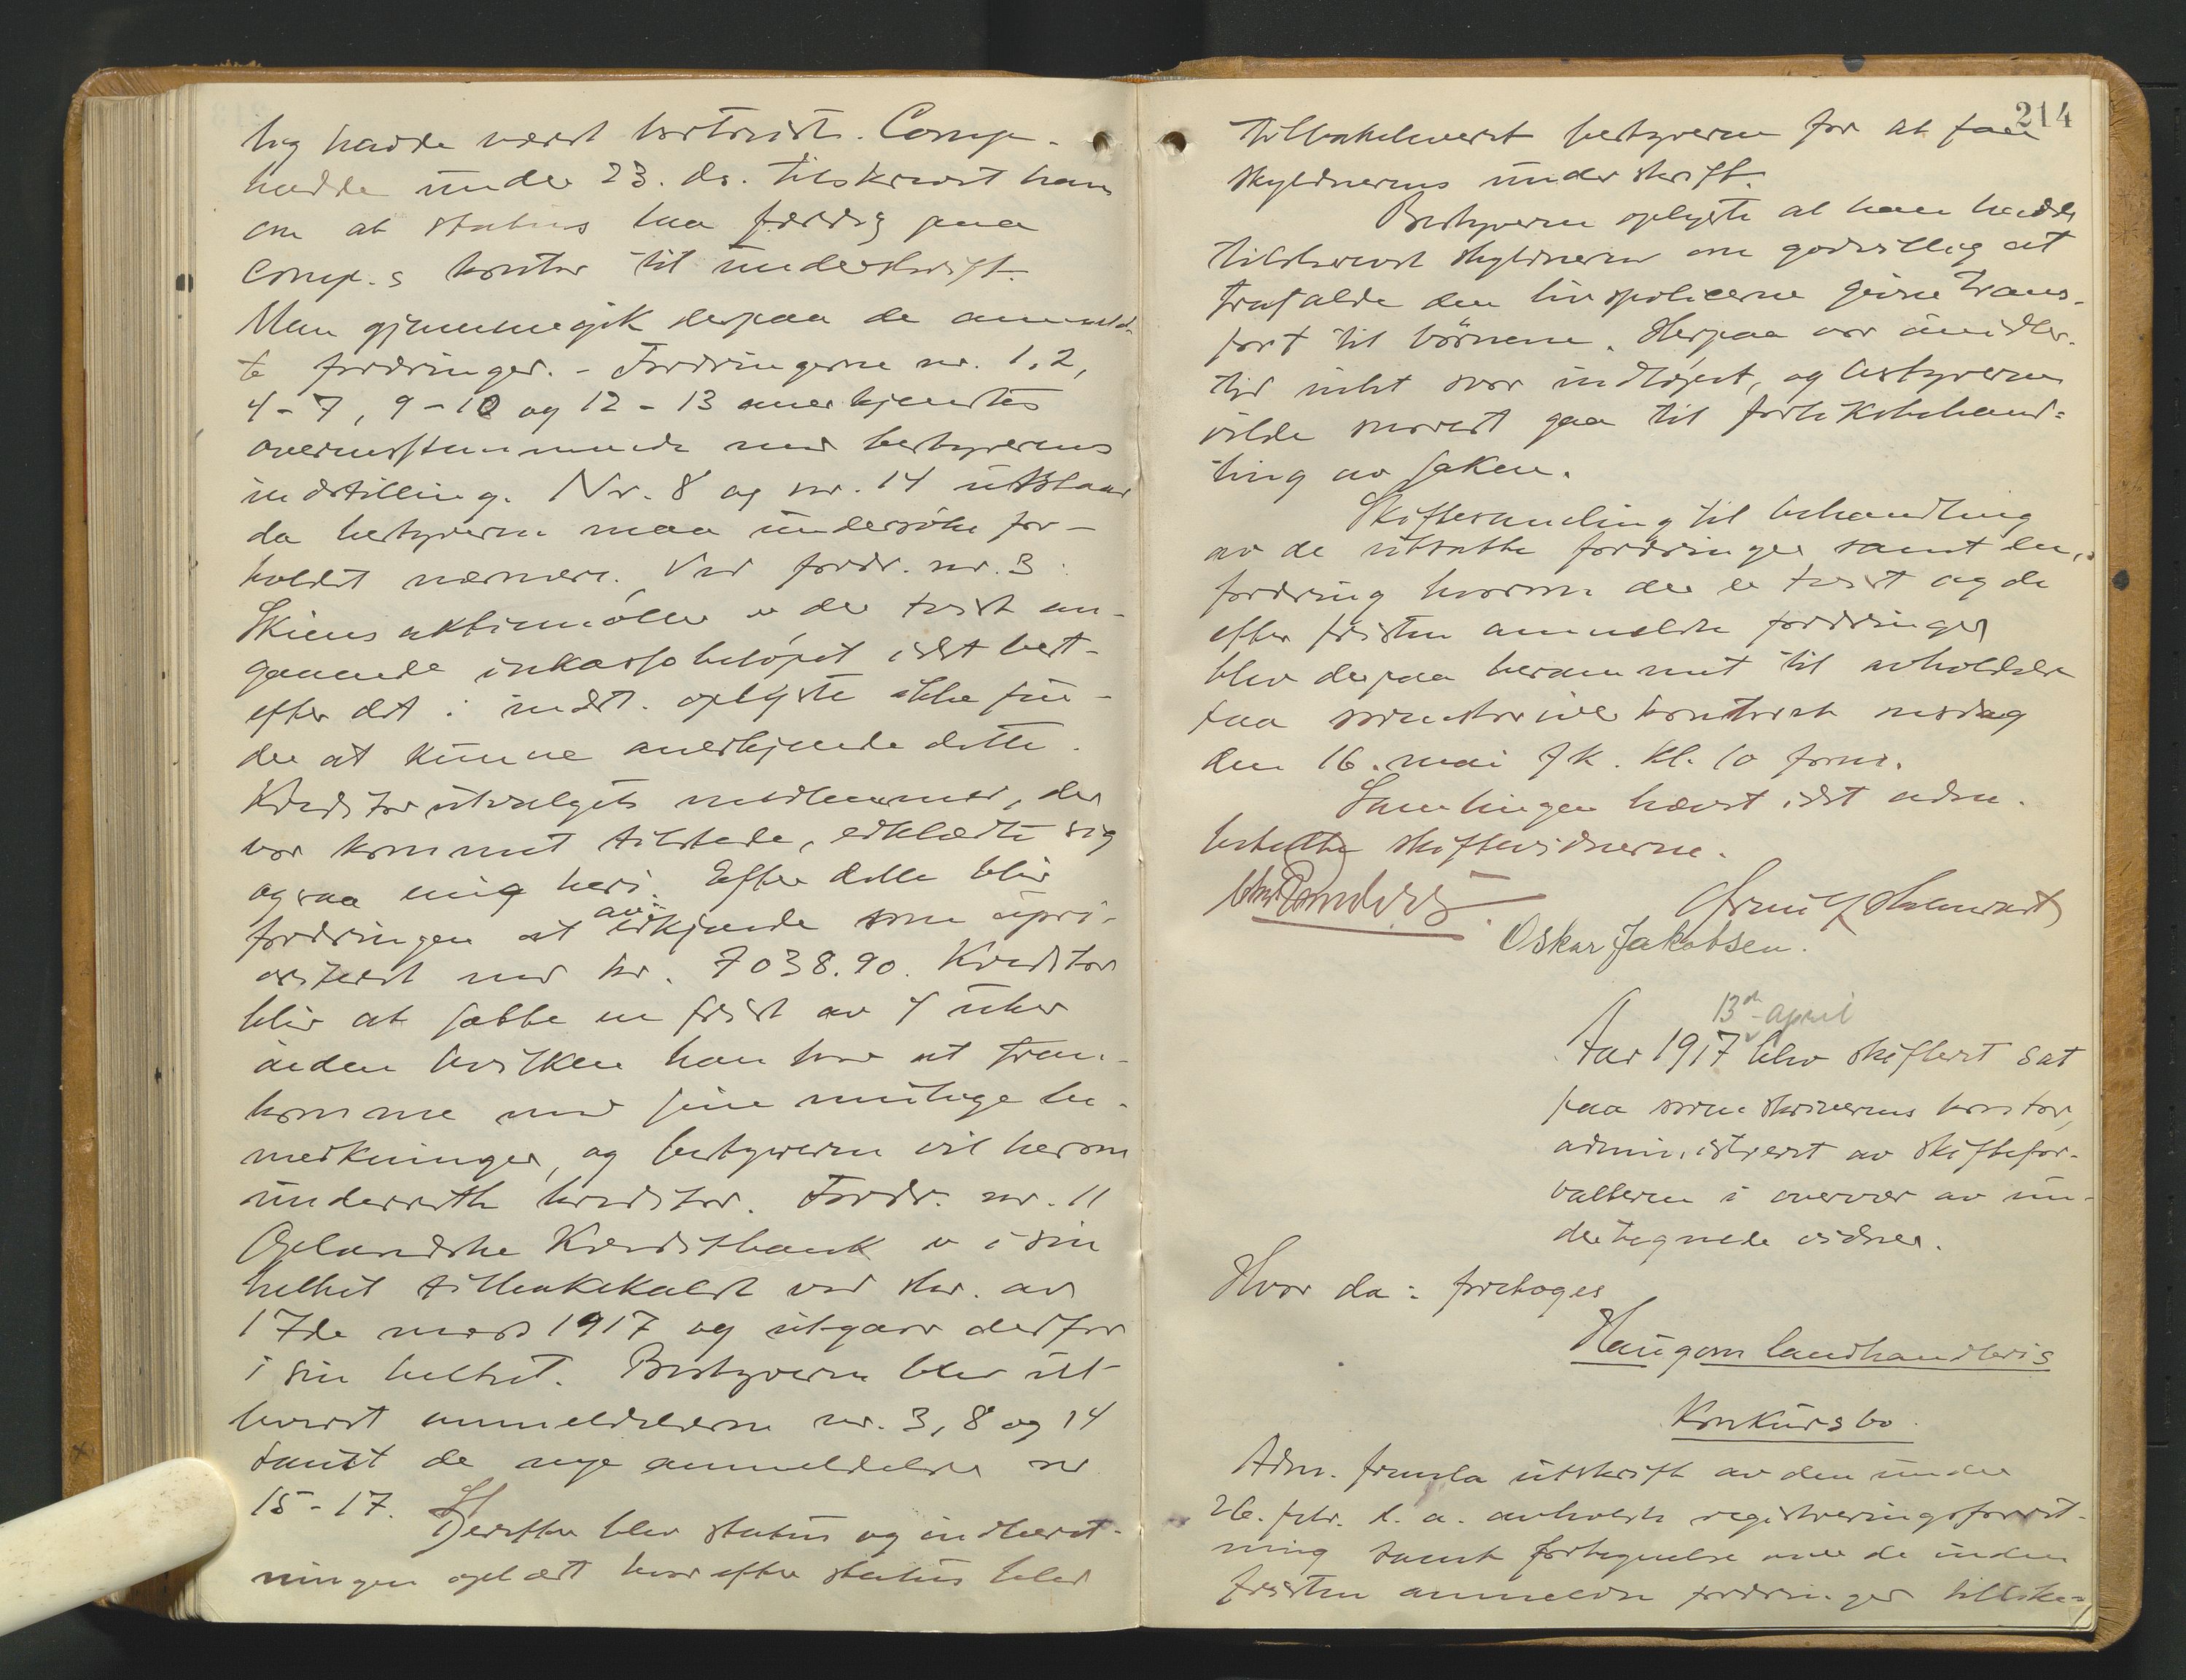 lig hadde været bortreist. Comp.
hadde under 23. ds. tilskrevet ham
om at status laa færdig paa
Comp.s kontor til underskrift.
Man gjennemgik derpaa de anmeld-
te fordringer. - Fordringerne nr. 1, 2,
4 - 7, 9 - 10 og 12 - 13 anerkjendtes
overensstemmende med bestyrerens
indstilling. Nr. 8 og nr. 14 utstaar
da bestyreren maa undersøke for-
holdet nærmere. Ved fordr. nr. 3:
Skiens aktiemølle er der tvist an-
gaaende inkassobeløpet idet best.
efter det i indst. oplyste ikke fin-
der at kunne anerkjende dette.
Kreditorutvalgets medlemmer, der
var kommet tilstede, erklærte sig
ogsaa enig heri. Efter dette blir
fordringen at anerkjende som upri-
oritert med kr. 7038.90. Kreditor
blir at sætte en frist av 4 uker
inden hvilken han har at frem-
komme med sine mulige be-
merkninger, og bestyreren vil herom
underrette kreditor. Fordr. nr. 11
Oplandske Kreditbank er i sin
helhet tilbakekaldt ved skr. av
17de mars 1917 og utgaar derfor
i sin helhet. Bestyreren blev ut-
leveret anmeldelserne nr. 3, 8 og 14
samt de nye anmeldelser nr
15 - 17.
Derefter blev status og indberet-
ningen oplæst hvorefter status blev
214
tilbakeleveret bestyreren for at faa
skyldnerens underskrift.
Bestyreren oplyste at han hadde
tilskrevet skyldneren om godvillig at
frafalde den livspolicerne givne trans-
port til børnene. Herpaa var imidler-
tid intet svar indløpet, og bestyreren
vilde snarest gaa til forliksbehand-
ling av saken.
Skiftesamling til behandling
av de utsatte fordringer samt den
fordring hvorom der er tvist og de
efter fristen anmeldte fordringer
blev derpaa berammet til avholdelse
paa sorenskriverkontoret onsdag
den 16. mai fk. kl. 10 form.
Samlingen hævet idet adm.
betalte skiftevidnerne.
Oskar Jakobsen.
13de april
Aar 1917 blev skifteret sat
paa sorenskriverens kontor,
administreret av skiftefor-
valteren i overvær av un-
dertegnede vidner.
Hvor da: foretoges
Haugom landhandleris
Konkursbo.
Adm. fremla utskrift av den under
26. febr. d. a. avholdte registreringsforret-
ning samt fortegnelse over de inden
fristen anmeldte fordringer tillike-